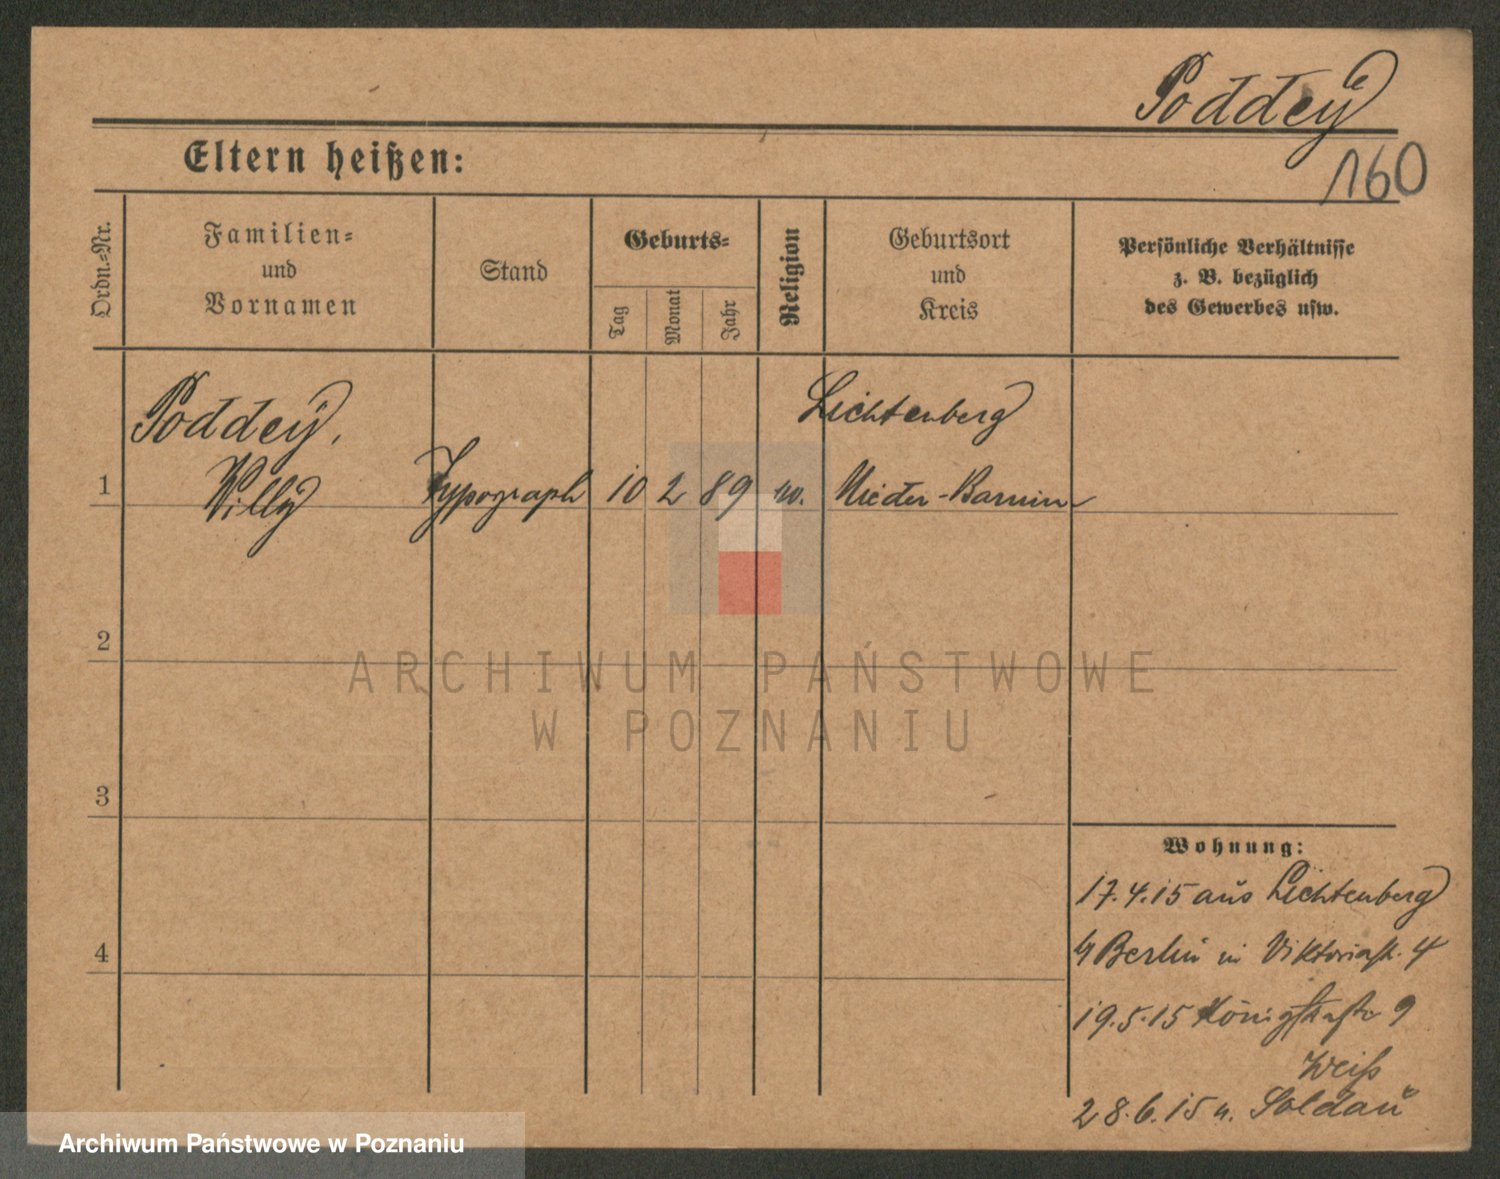 Poddey
160
Eltern heißen:
Ordn.-Nr.
Familien-
und
Vornamen
Stand
Geburts-
Tag
Monat
Jahr
Religion
Geburtsort
und
Kreis
Persönliche Verhältnisse
z. B. bezüglich
des Gewerbes usw.
Poddey,
Lichtenberg
1 Willy Typograph 10 2 89 Nieder-Barnim
2
3
4
Wohnung:
17.4.15 aus Lichtenberg
Berlin in Viktoriastr. 4
19.5.15 Königstraße 9
Weiß
28.6.15 n. Soldau
ARCHIWUM PAŃSTWOWE
W POZNANIU
Archiwum Państwowe w Poznaniu